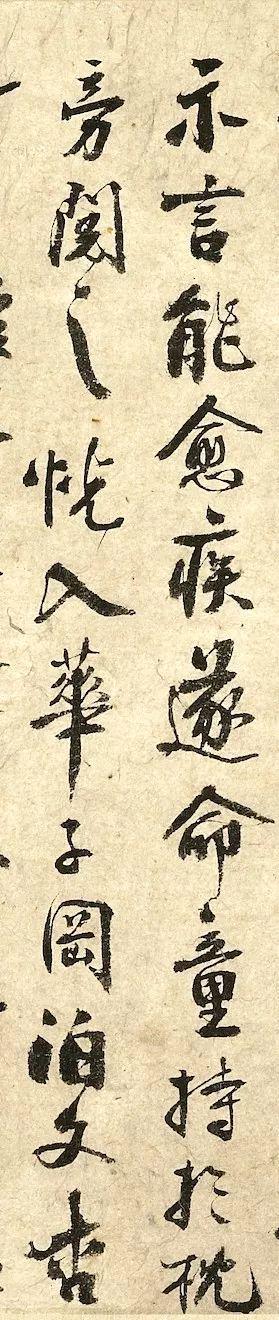 示言能愈疾遂命童持於枕
旁閲之恍入華子岡泊文杏